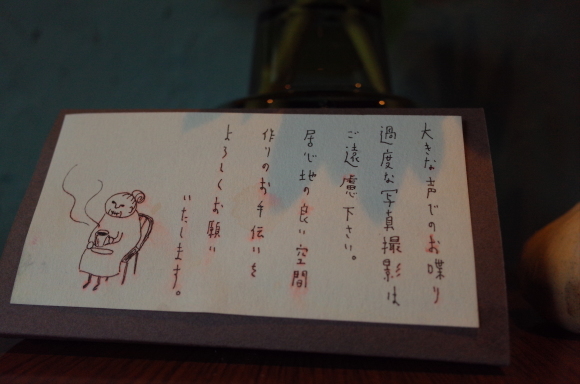 大きな声でのお喋り
過度な写真撮影は
ご遠慮下さい。
居心地の良い空間
作りのお手伝いを
よろしくお願い
いたします。